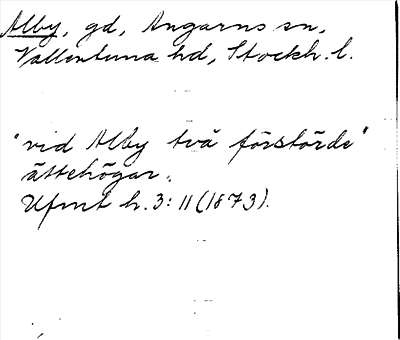 Alby, gd, Angarns sn,
Vallentuna hd, Stockh. l.
"vid Alby två förstörde"
ättehögar.
Ufmt h. 3: 11 (1873).